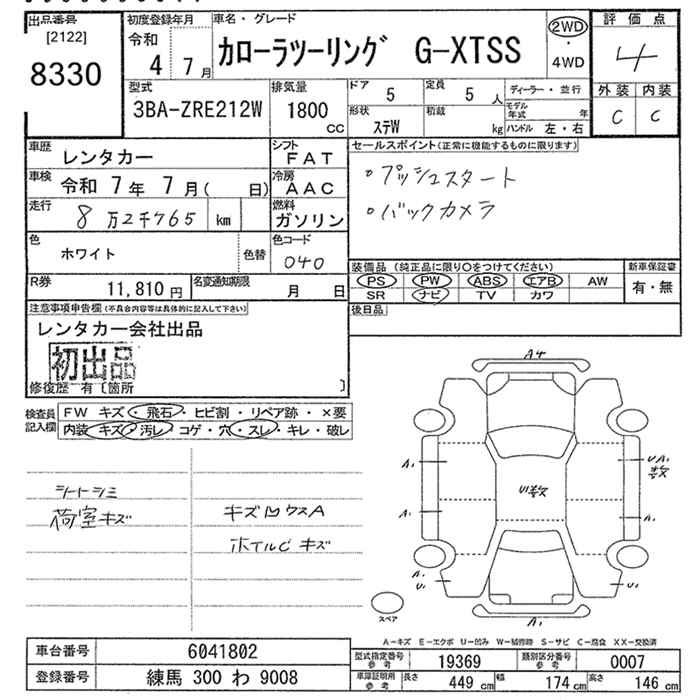 出品番号
[2122]
8330
初度登録年月
令和
4年 7月
車名・グレード
カローラツーリング G-XTSS
2WD
・
4WD
評価点
4
外装 内装
C C
型式
3BA-ZRE212W
排気量
1800
CC
ドア 5
定員 5 人
形状 ステW
積載 kg
ディーラー・並行
モデル年式 年
ハンドル 左・右
車歴 レンタカー
シフト FAT
車検 令和 7年 7月( 日)
冷房 AAC
走行 8万2千765 km
燃料 ガソリン
色 ホワイト
色替
色コード 040
R券 11,810 円
名変通知期限 月 日
セールスポイント(正常に機能するものに限ります)
・プッシュスタート
・バックカメラ
装備品 (純正品に限り○をつけてください)
新車保証書
PS PW ABS エアB AW
有・無
SR ナビ TV カワ
後日品
注意事項申告欄(不具合内容等は具体的に記入して下さい)
レンタカー会社出品
初出品
修復歴 有〔箇所 〕
検査員記入欄
FW キズ・飛石・ヒビ割・リペア跡・×要
内装 キズ・汚レ・コゲ・穴・スレ・キレ・破レ
シートシミ
荷室キズ
キズ凹ウスA
ホイルC キズ
A4
A1
UA1
数
U1数
A1
A1
A1
U1
U1
A1
スペア
A-キズ E-エクボ U-凹み W-補修跡 S-サビ C-腐食 XX-交換済
車台番号 6041802
登録番号 練馬 300 わ 9008
型式指定番号 参考 19369
類別区分番号 参考 0007
車庫証明用 参考 長さ 449 cm 幅 174 cm 高さ 146 cm